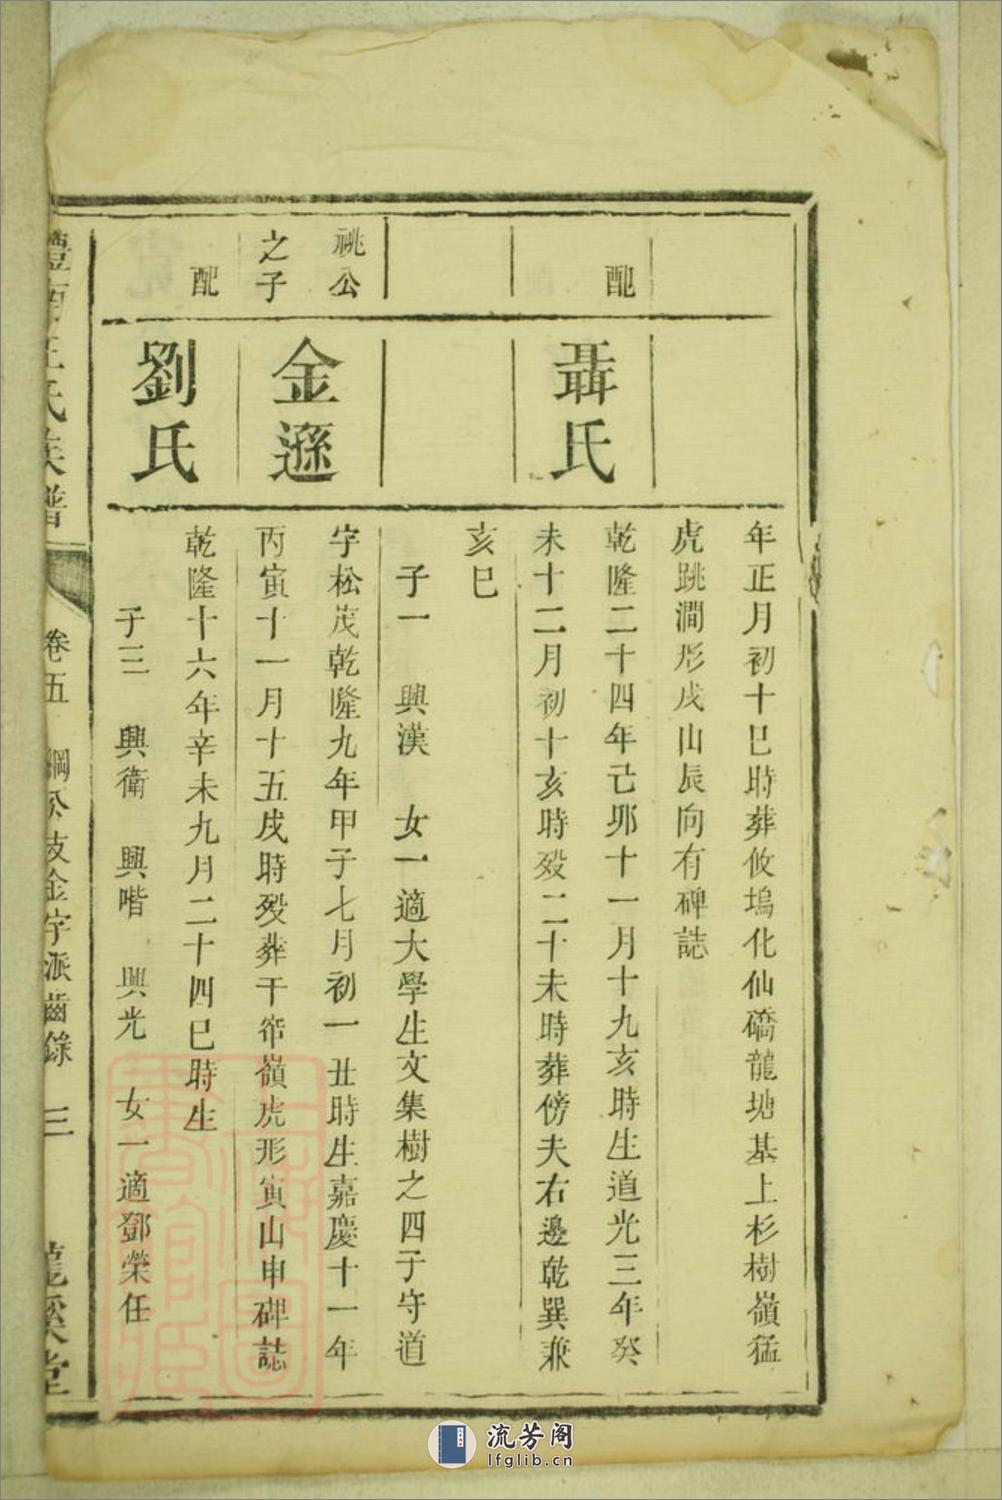 年正月初十巳時葬攸塢化仙礄龍塘基上杉樹嶺猛
虎跳澗形戌山辰向有碑誌
配
聶氏
乾隆二十四年己夘十一月十九亥時生道光三年癸
未十二月初十亥時殁二十未時葬傍夫右邊乾巽兼
亥巳
子一 興漢 女一適大學生文集樹之四子守道
祧公
之子
金遜
字松茂乾隆九年甲子七月初一丑時生嘉慶十一年
丙寅十一月十五戌時殁葬干 嶺虎形寅山申碑誌
配
劉氏
乾隆十六年辛未九月二十四巳時生
子三 興衛 興喈 興光 女一適鄧榮任
氏族譜
卷五 綱公支金字派齒錄 三
龍溪堂
流芳阁
lfglib.cn